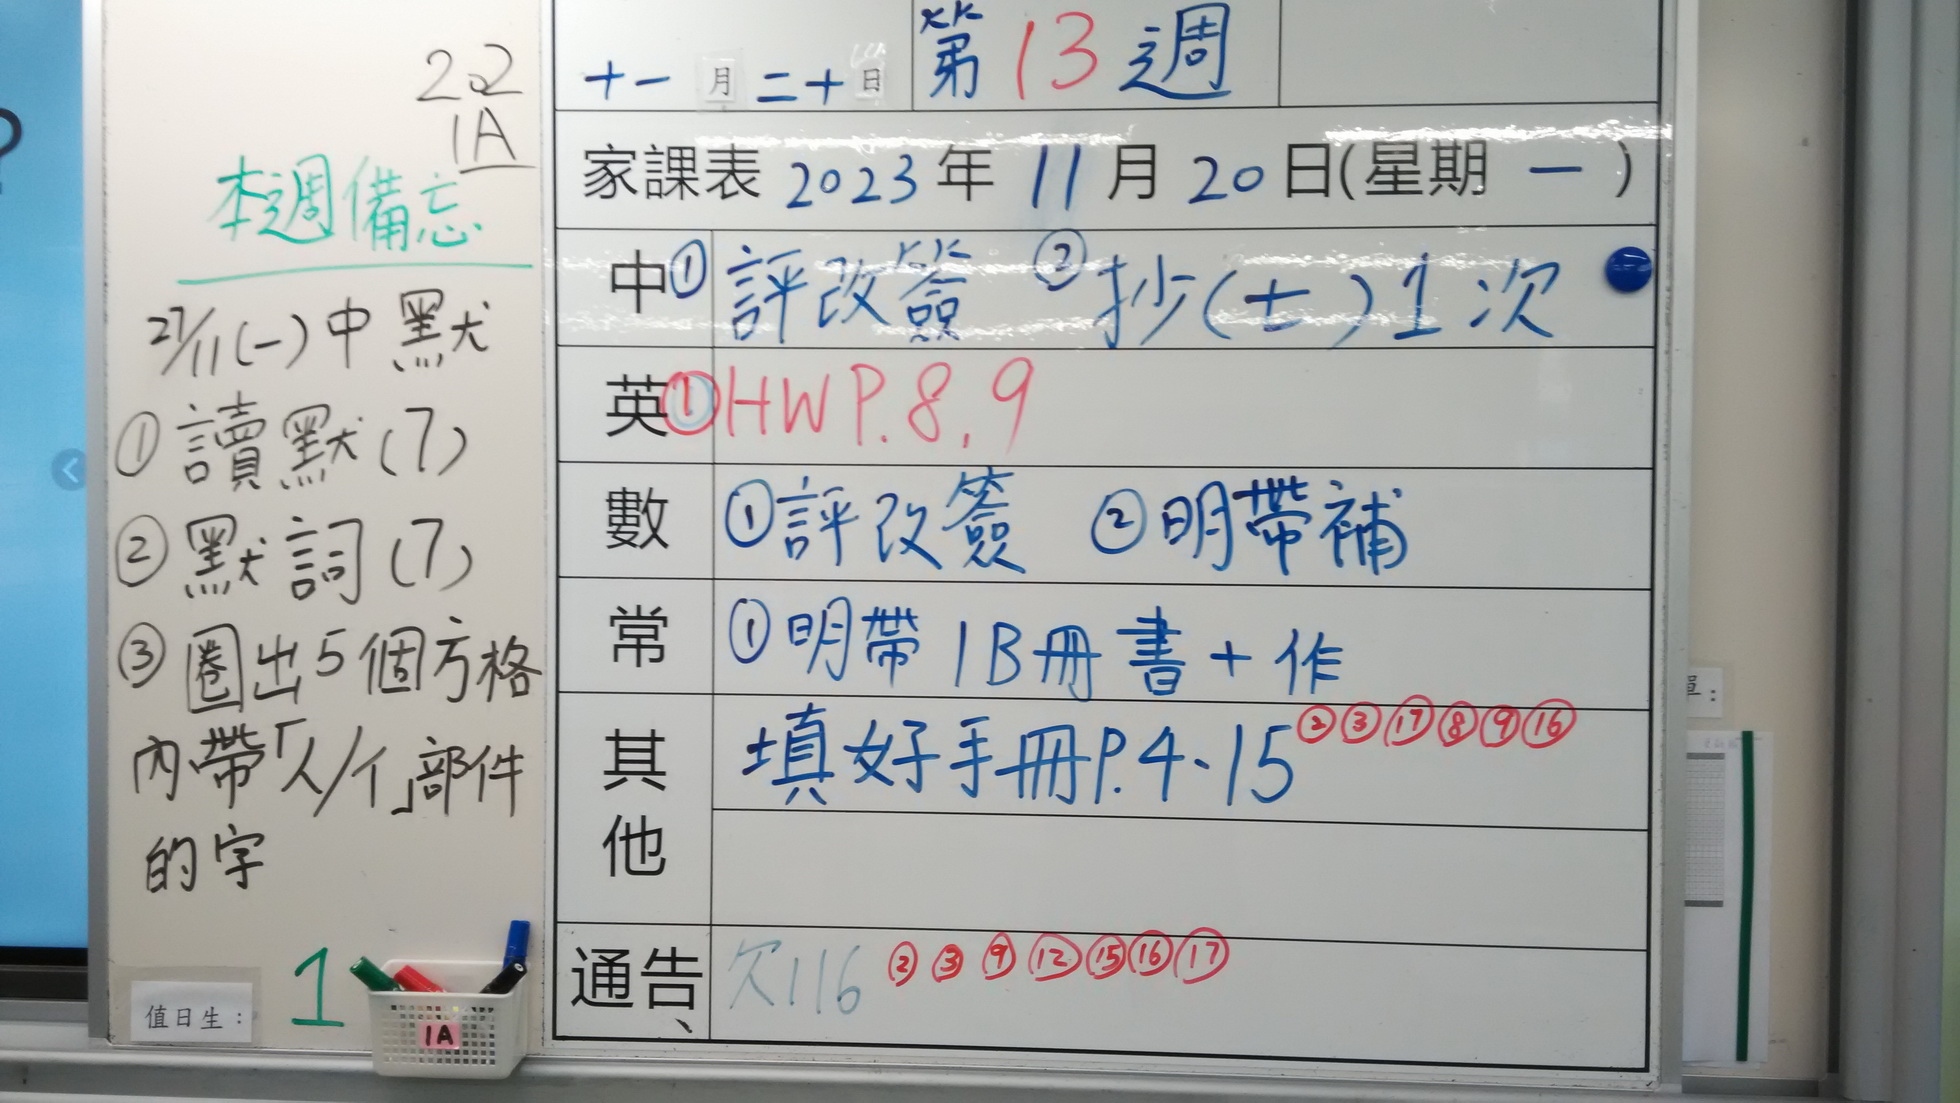 202
1A
本週備忘
27/11(一)中默
①讀默(7)
②默詞(7)
③圈出5個方格
內帶「人/亻」部件
的字
值日生：
1
1A
十一月二十日 第13週
家課表 2023年11月20日(星期一)
中 ①評改簽 ②抄(七)1次
英 ①HWP.8,9
數 ①評改簽 ②明帶補
常 ①明帶1B冊書+作
其他 填好手冊P.4、15 ②③⑰⑧⑨⑯
通告、 欠116 ②③⑨⑫⑮⑯⑰